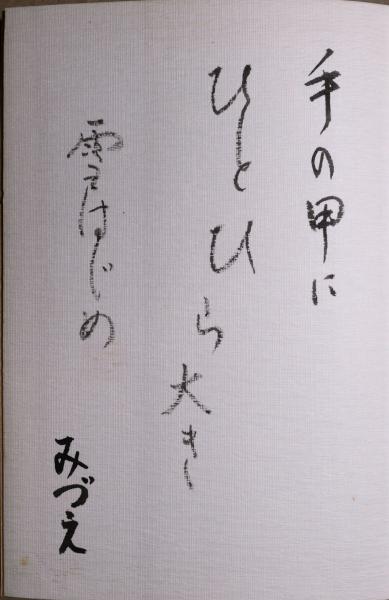 手の甲に
ひとひら大き
雪はじめ
みづえ